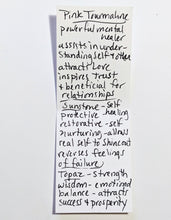 Pink Tourmaline
powerful mental
healer
assists in under-
standing self + others
attracts love
inspires trust
+ beneficial for
relationships
Sunstone - self
protective, healing
restorative - self
nurturing - allows
real self to shine out
reverses feelings
of failure
Topaz - strength
wisdom - emotional
balance - attract
success & prosperity